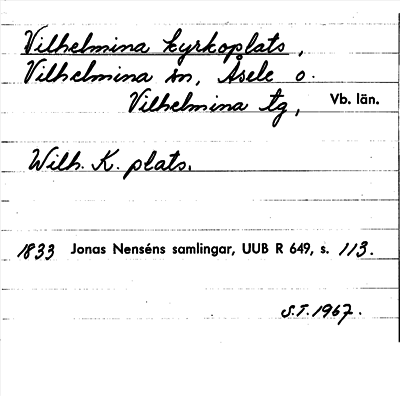 Vilhelmina kyrkoplats,
Vilhelmina sn, Åsele o.
Vilhelmina tg, Vb. län.
Wilh. K. plats.
1833 Jonas Nenséns samlingar, UUB R 649, s. 113.
S.T. 1967.